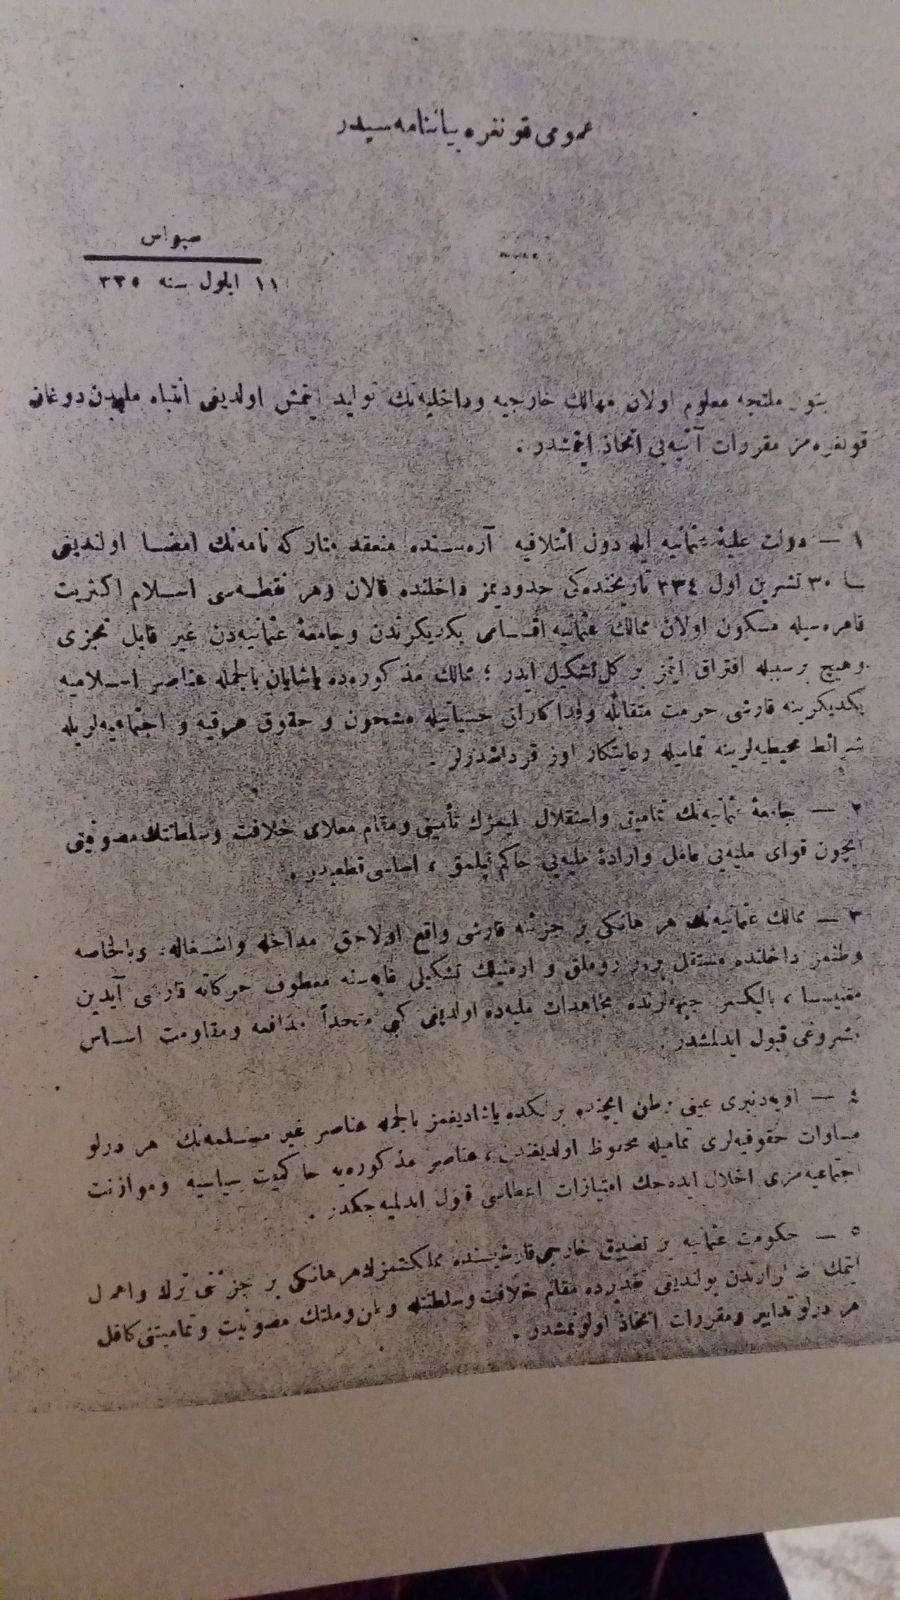 عمومی قونغره بیاننامه سیدر
سیواس
١١ ایلول سنه ٣٣٥
بتون ملتجه معلوم اولان مهالك خارجیه وداخلیه‌نك تولید ایتمش اولدیغی انتباه ملیدن دوغان
قونغره‌مز مقررات آتیه‌یی اتخاذ ایتمشدر .
١ — دولت علیهٔ عثمانیه ایله دول ائتلافیه آره‌سنده منعقد متاركه نامه‌نك امضا اولندیغی
٣٠ تشرین اول ٣٣٤ تاریخنده‌كی حدودیمز داخلنده قالان وهر نقطه‌سی اسلام اكثریت
قاهره‌سیله مسكون اولان ممالك عثمانیه اقسامی یكدیكرندن وجامعهٔ عثمانیه‌دن غیر قابل تجزی
وهیچ برسببله افتراق ایتمز بر كل تشكیل ایدر ؛ ممالك مذكوره‌ده یاشایان بالجمله عناصر اسلامیه
یكدیكرینه قارشی حرمت متقابله وفداكارلق حسیاتیله مشحون و حقوق عرقیه و اجتماعیه‌لریله
شرائط محیطیه‌لرینه تمامیله رعایتكار اوز قرداشدرلر .
٢ — جامعهٔ عثمانیه‌نك تمامیتی واستقلال ملیمزك تأمینی ومقام معلای خلافت وسلطنتك مصونیتی
ایچون قوای ملیه‌یی عامل وارادهٔ ملیه‌یی حاكم قیلمق ، اساسی قطعیدر .
٣ — ممالك عثمانیه‌نك هر هانكی بر جزئنه قارشی واقع اولاجق مداخله واشغاله وبالخاصه
وطنمز داخلنده مستقل برر روملق و ارمنیلك تشكیلی غایه‌سنه معطوف حركاته قارشی آیدین
مغنیسا ، بالیكسر جبهه‌لرنده مجاهدات ملیه‌ده اولدیغی كبی متحداً مدافعه ومقاومت اساس
مشروعی قبول ایدلمشدر .
٤ — اوته‌دنبری عینی وطن ایچنده برلكده یاشادیغمز بالجمله عناصر غیر مسلمه‌نك هر درلو
مساوات حقوقیه‌لری تمامیله محفوظ اولدیغندن ، عناصر مذكوره‌یه حاكمیت سیاسیه وموازنت
اجتماعیه‌مزی اخلال ایده‌جك امتیازات اعطاسی قبول ایدلمیه‌جكدر .
٥ — حكومت عثمانیه بر تضییق خارجی قارشیسنده مملكتمزك هر هانكی بر جزئنی ترك واهمال
ایتمك اضطرارنده بولندیغی تقدیرده مقام خلافت وسلطنتله وطن وملتك مصونیت وتمامیتنی كافل
هر درلو تدابیر ومقررات اتخاذ اولونمشدر .